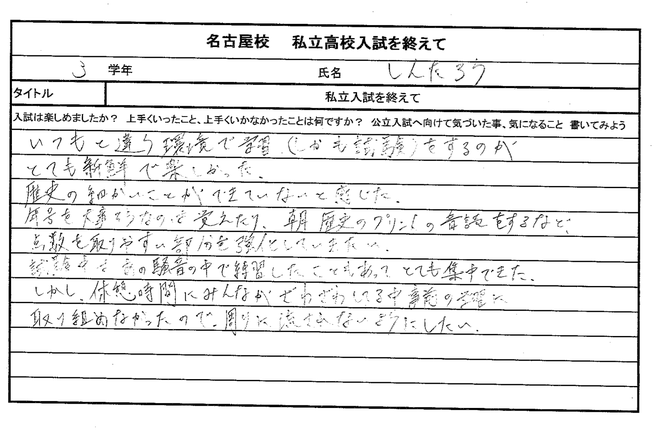 名古屋校　私立高校入試を終えて
3 学年　氏名　しんたろう
タイトル　私立入試を終えて
入試は楽しめましたか？ 上手くいったこと、上手くいかなかったことは何ですか？ 公立入試へ向けて気づいた事、気になること 書いてみよう
いつもと違う環境で学習(しかも試験)をするのが
とても新鮮で楽しかった。
歴史の細かいことができていないと感じた。
年号を大事そうなのを覚えたり、朝歴史のプリントの音読をするなど、
点数も取りやすい部分を強化していきたい。
試験中は の騒音の中で練習したこともあってとても集中できた。
しかし、休憩時間にみんながざわざわしてる中事前の学習に
取り組めなかったので、周りに流されないようにしたい。